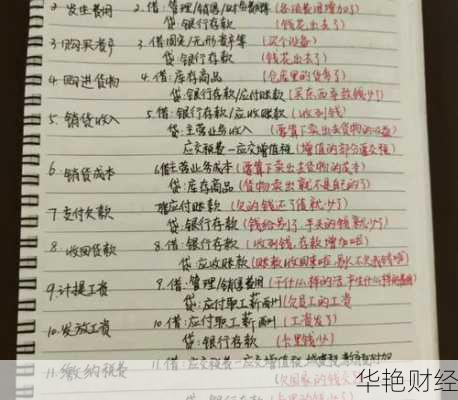 2. 发生费用 2. 借：管理/销售/财务费用（各项费用增加了）
贷：银行存款（钱花出去了）
3. 购买资产 3. 借：固定/无形资产等（买个设备）
贷：银行存款（钱花出去了）
4. 购进货物 4. 借：库存商品（仓库里的货多了）
贷：银行存款/应付账款（买东西卡款钱少了）
5. 销货收入 5. 借：银行存款/应收账款（收到钱）
贷：主营业务收入（落笔下卖出去货物的收益）
应交税费—应交增值税（增值的部分逢交税）
6. 销货成本 6. 借：主营业务成本（落笔下卖出去货物的成本）
贷：库存商品（货物卖出就不是自己的了）
7. 支付欠款 7. 借：应付账款（欠的钱还了债就少了）
贷：银行存款（钱给别了，手头的钱就少了）
8. 收回货款 8. 借：银行存款（收到钱，存款增加啦）
贷：应收账款（账款收回来啦，别人不欠我钱啦）
9. 计提工资 9. 借：管理/销售费用（干什么样的活，产生什么样的费用）
贷：应付职工薪酬（欠员工的工资
10. 发放工资 10. 借：应付职工薪酬（工资发了）
贷：银行存款（卡里钱少）
11. 缴纳税费 11. 借：应交税费—应交增值税
（欠国家的钱
贷：银行存款
华艳财经